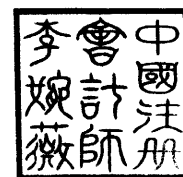 中國注册
會計師
李婉薇